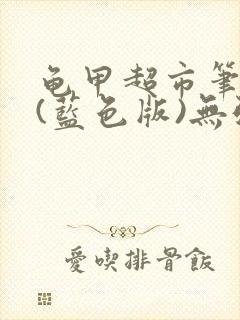 龟甲超市筆
(藍色版)無
愛喫排骨飯